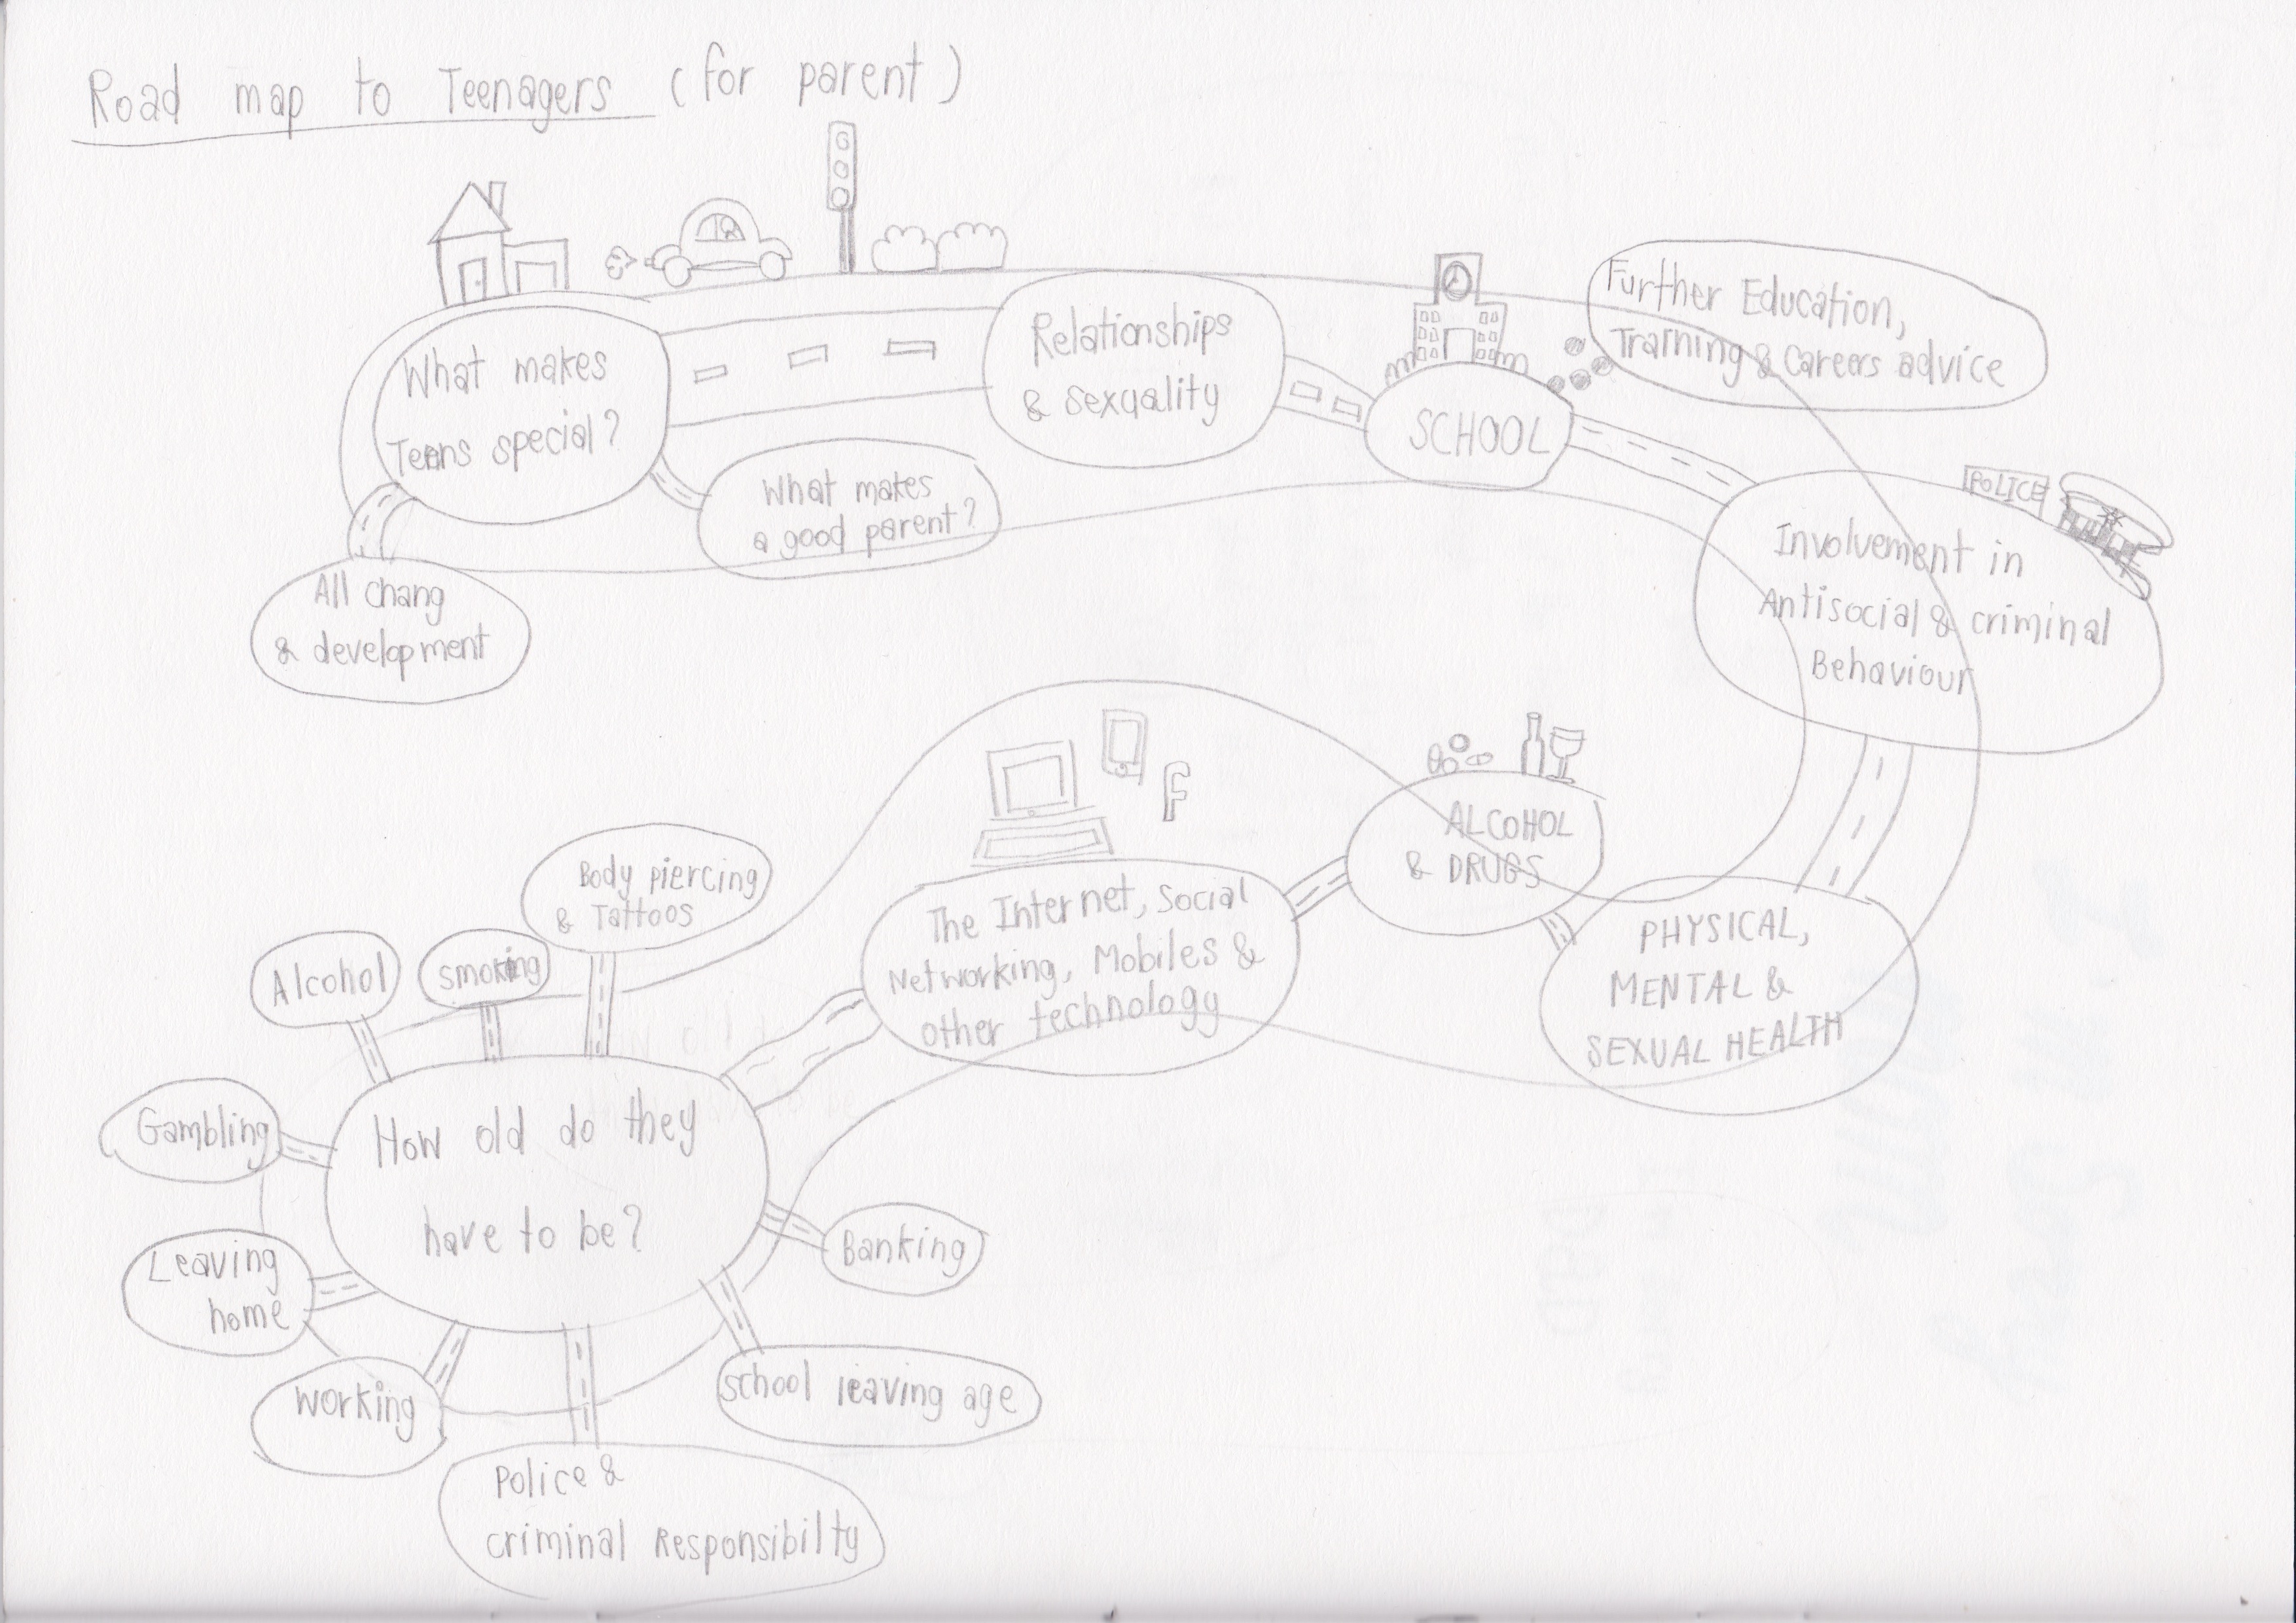 Road map to Teenagers (for parent)
What makes
Teens special?
Relationships
& sexuality
SCHOOL
Further Education,
Training & Careers advice
What makes
a good parent?
All chang
& development
POLICE
Involvement in
Antisocial & criminal
Behaviour
PHYSICAL,
MENTAL &
SEXUAL HEALTH
ALCOHOL
& DRUGS
f
The Internet, Social
Networking, Mobiles &
other technology
How old do they
have to be?
Body piercing
& Tattoos
smoking
Alcohol
Gambling
Leaving
home
Working
Police &
criminal Responsibilty
school leaving age
Banking